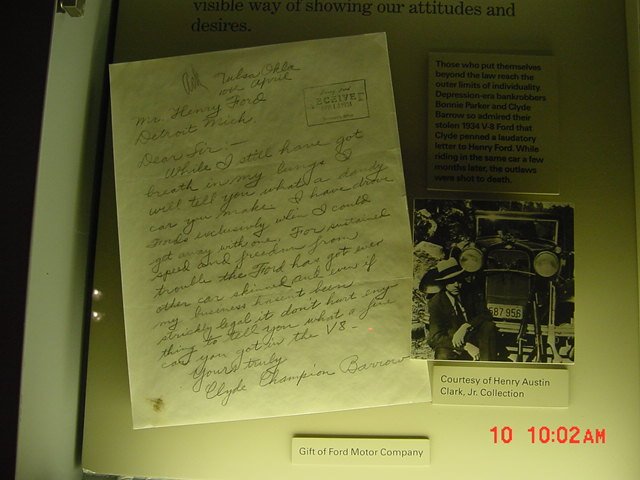 visible way of showing our attitudes and
desires.
Tulsa Okla
10th April
Mr. Henry Ford
Detroit Mich.
Dear Sir:—
While I still have got
breath in my lungs I
will tell you what a dandy
car you make. I have drove
Fords exclusively when I could
get away with one. For sustained
speed and freedom from
trouble the Ford has got ever
other car skinned and even if
my business hasen't been
strickly legal it don't hurt eny
thing to tell you what a fine
car you got in the V8—
Yours truly
Clyde Champion Barrow
Those who put themselves
beyond the law reach the
outer limits of individuality.
Depression-era bankrobbers
Bonnie Parker and Clyde
Barrow so admired their
stolen 1934 V-8 Ford that
Clyde penned a laudatory
letter to Henry Ford. While
riding in the same car a few
months later, the outlaws
were shot to death.
587 956
Courtesy of Henry Austin
Clark, Jr. Collection
Gift of Ford Motor Company
10 10:02AM